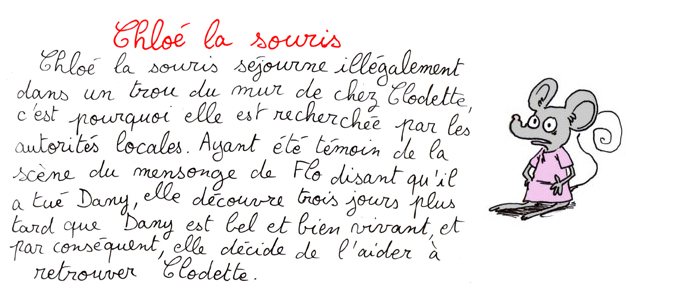 Chloé la souris
Chloé la souris séjourne illégalement
dans un trou du mur de chez Clodette,
c'est pourquoi elle est recherchée par les
autorités locales. Ayant été témoin de la
scène du mensonge de Flo disant qu'il
a tué Dany, elle découvre trois jours plus
tard que Dany est bel et bien vivant, et
par conséquent, elle décide de l'aider à
retrouver Clodette.